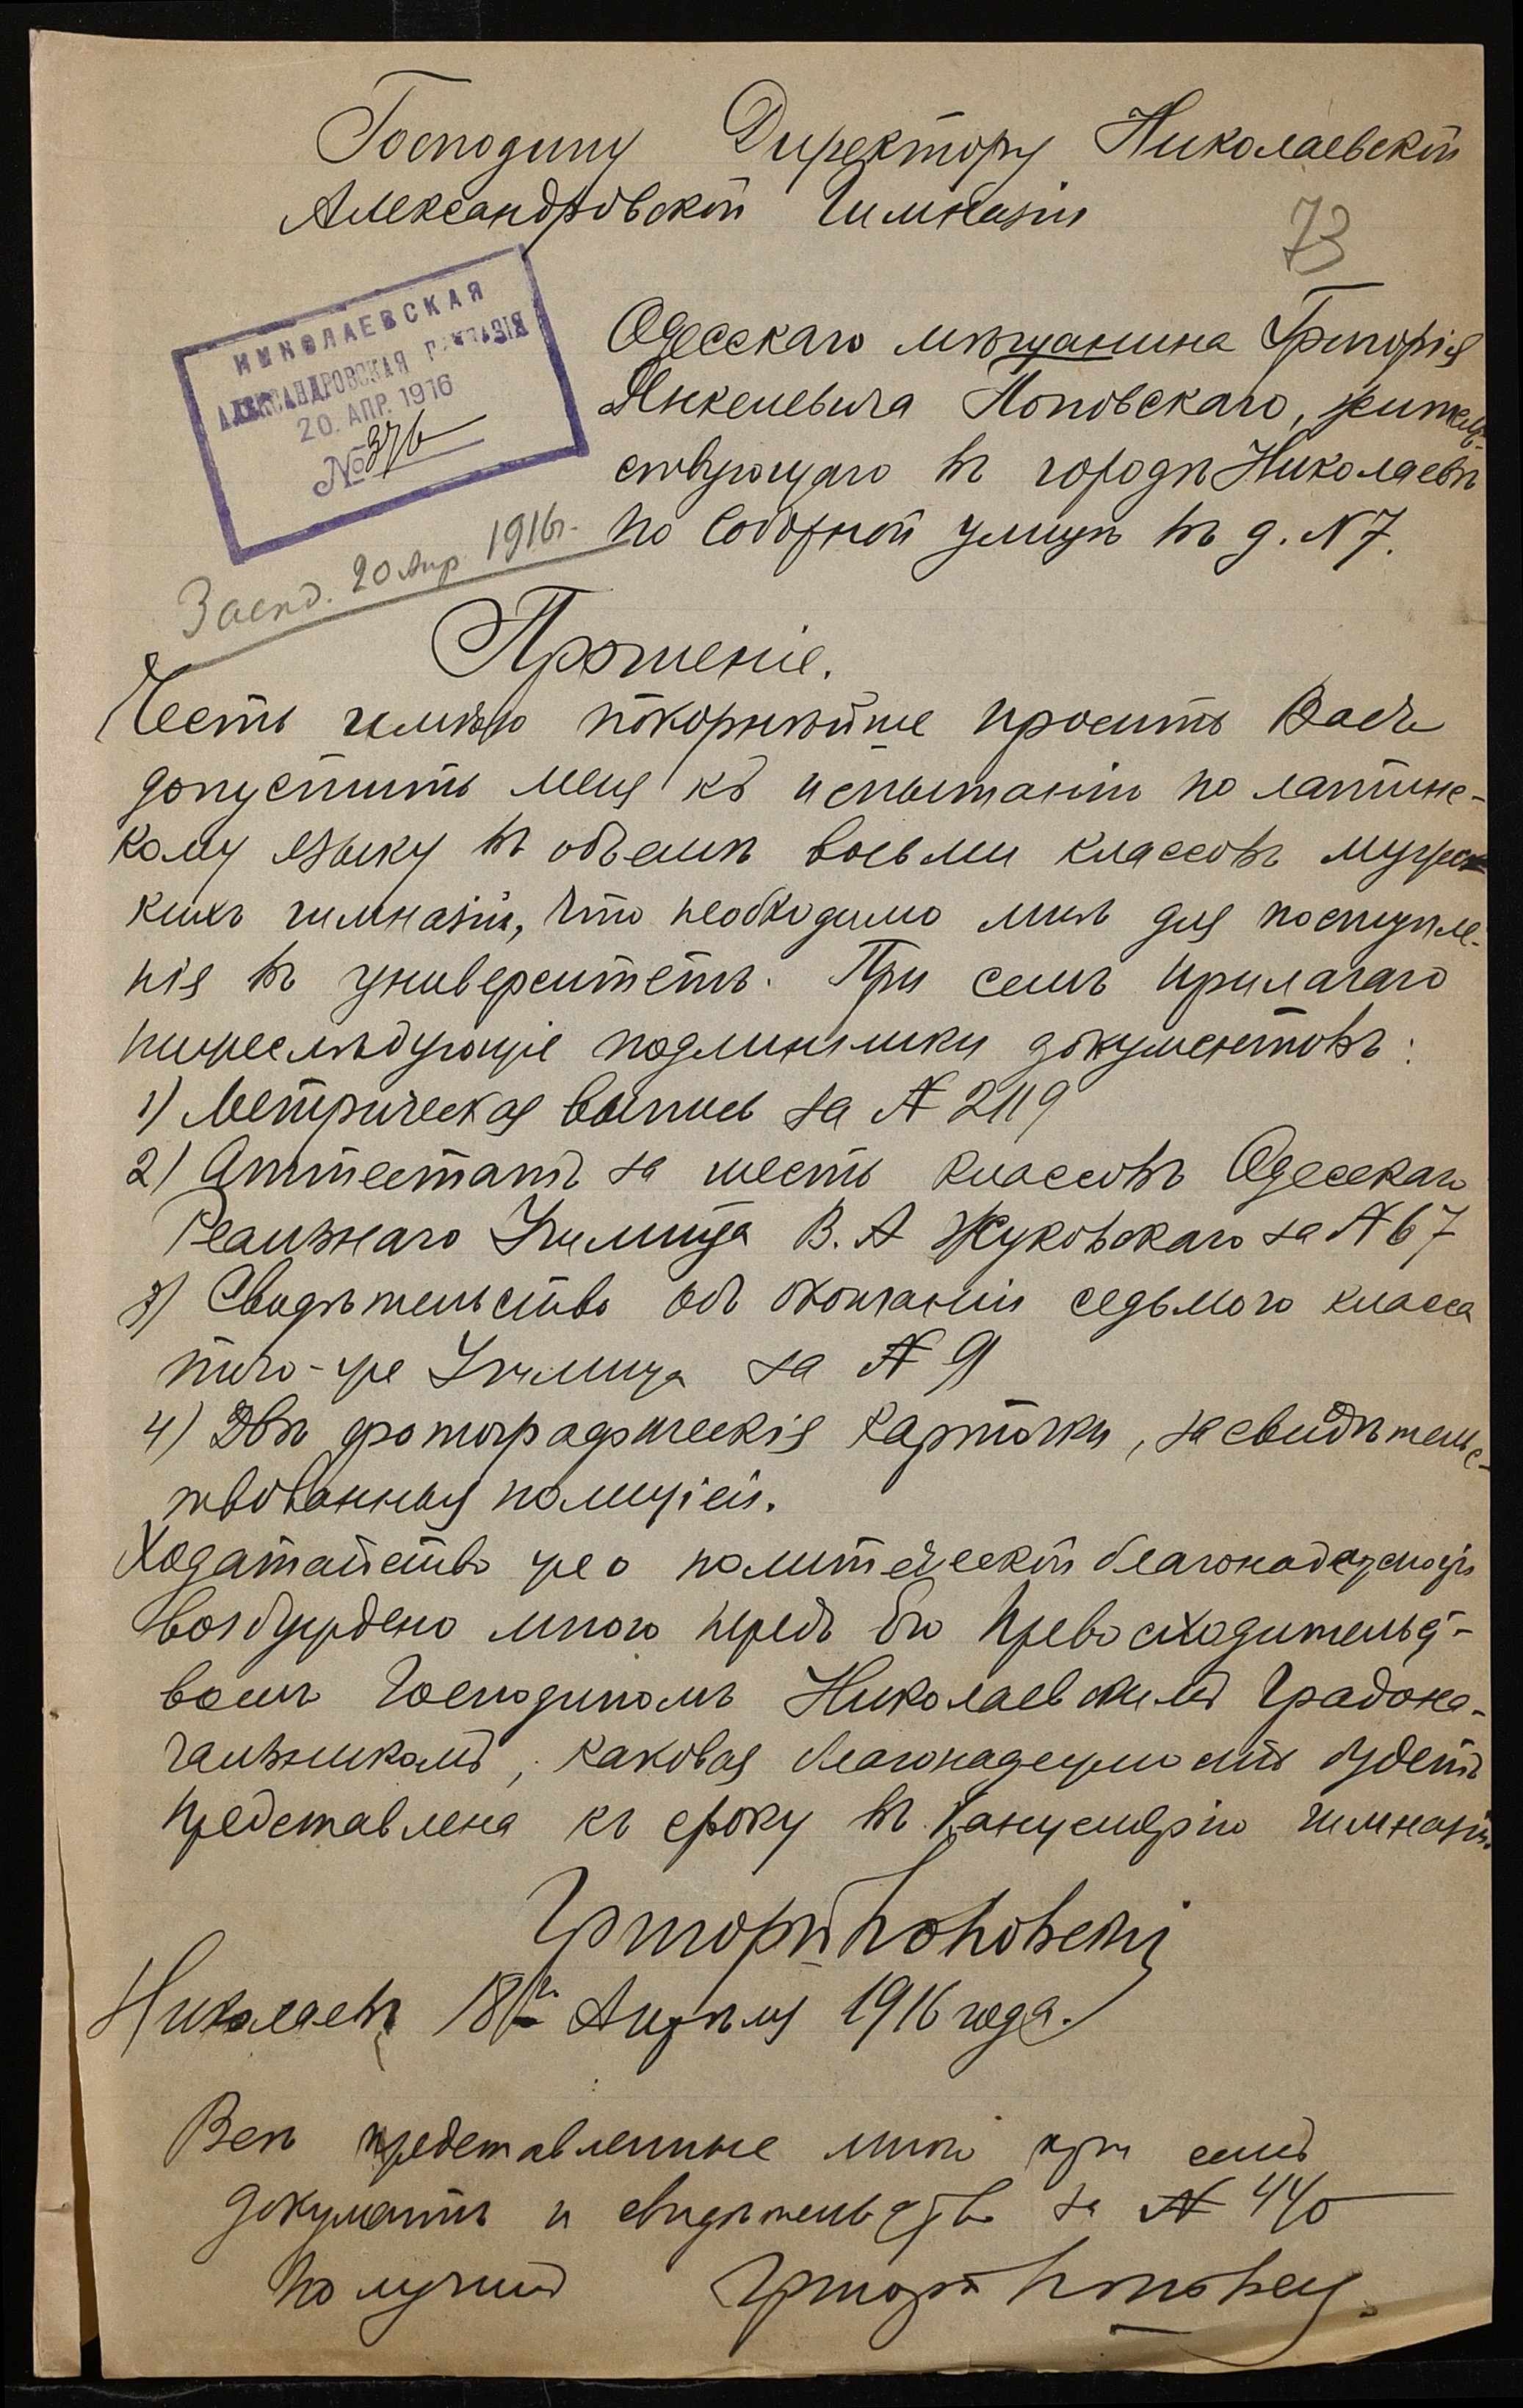 Господину Директору Николаевской
Александровской Гимназiи
73
НИКОЛАЕВСКАЯ
АЛЕКСАНДРОВСКАЯ ГИМНАЗIЯ
20. АПР. 1916
№ 376
Одесскаго мѣщанина Григорiя
Янкелевича Поповскаго, житель-
ствующаго въ городѣ Николаевѣ
по Соборной улицѣ въ д. N 7.
Засѣд. 20 Апр. 1916 г.
Прошенiе.
Честь имѣю покорнѣйше просить Васъ
допустить меня къ испытанiю по латинс-
кому языку въ объемѣ восьми классовъ мужс-
кихъ гимназiй, что необходимо мнѣ для поступле-
нiя въ университетъ. При семъ прилагаю
нижеслѣдующiе подлинники документовъ:
1) Метрическая выпись за N 2119
2) Аттестатъ за шесть классовъ Одесскаго
Реальнаго Училища В. А Жуковскаго за N 67
3) Свидѣтельство объ окончанiи седьмого класса
того-же Училища за N 9
4) Двѣ фотографическiя карточки, засвидѣтельс-
твованныя полицiей.
Ходатайство же о политической благонадежности
возбуждено мною передъ Его Превосходительст-
вомъ Господиномъ Николаевскимъ Градона-
чальникомъ, каковая благонадежность будетъ
представлена къ сроку въ Канцелярiю гимназiи.
Григорiй Поповскiй
Николаевъ 18го Апрѣля 1916 года.
Всѣ представленные мною при семъ
документы и свидѣтельство за N 440
получилъ Григорiй Поповскiй.